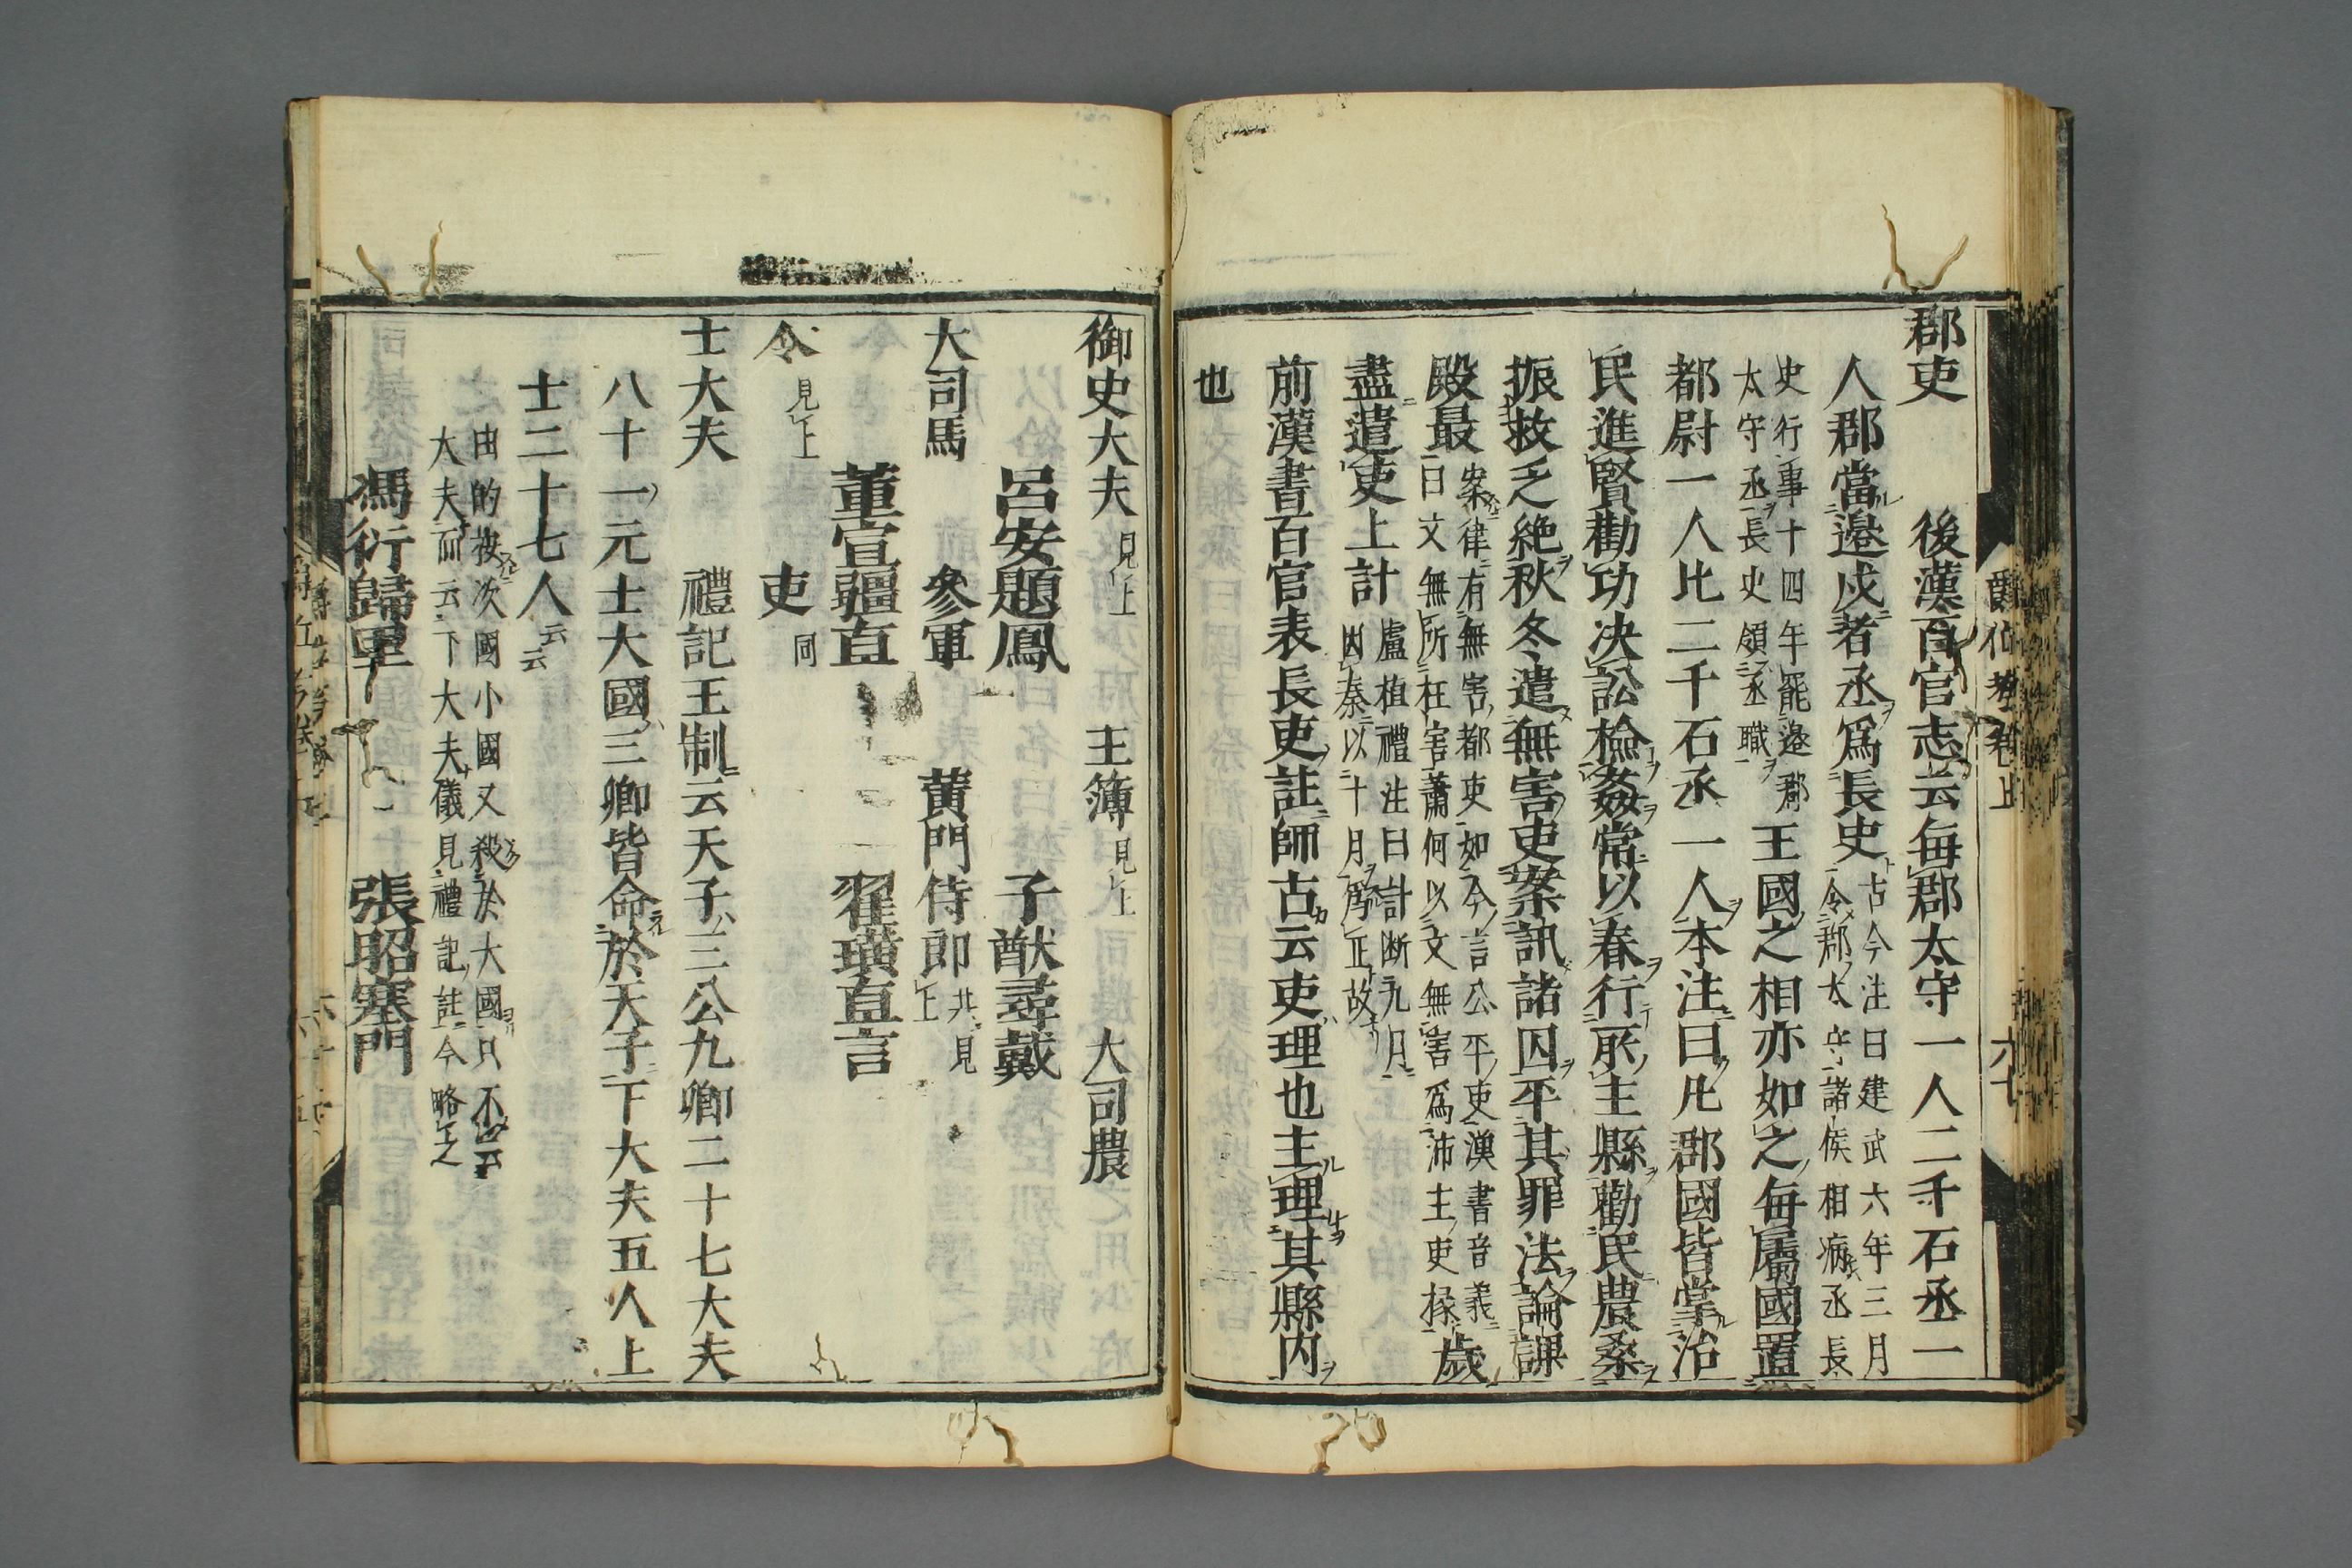 郡吏　後漢百官志云毎郡太守一人二千石丞一
人郡當邊戍者丞爲長史
古今注曰建武六年三月
令郡太守諸侯相病丞長
史行事十四年罷邊郡
太守丞長史領丞職
王國之相亦如之毎屬國置
都尉一人比二千石丞一人本注曰凡郡國皆掌治
民進賢勸功决訟檢姦常以春行所主縣勸民農桑
振救乏絶秋冬遣無害吏案訊諸囚平其罪法論課
殿最
案律有無害都吏如今言公平吏漢書音義
曰文無所枉害蕭何以文無害爲沛主吏掾
歳
盡遣吏上計
盧植禮注曰計断九月
因秦以十月爲正故
前漢書百官表長吏註師古云吏理也主理其縣内
也
御史大夫見上　主簿見上　大司農
呂安題鳳　子猷尋戴
大司馬　參軍　黄門侍郎共見上
董宣彊直　翟璜直言
令見上　吏同
士大夫　禮記王制云天子三公九卿二十七大夫
八十一元士大國三卿皆命於天子下大夫五人上
士二十七人云云
由的按次國小國又殺於大國只不云
大夫而云下大夫儀見禮記註今略之
馮衍歸里　張昭塞門
爵位考卷上　六十